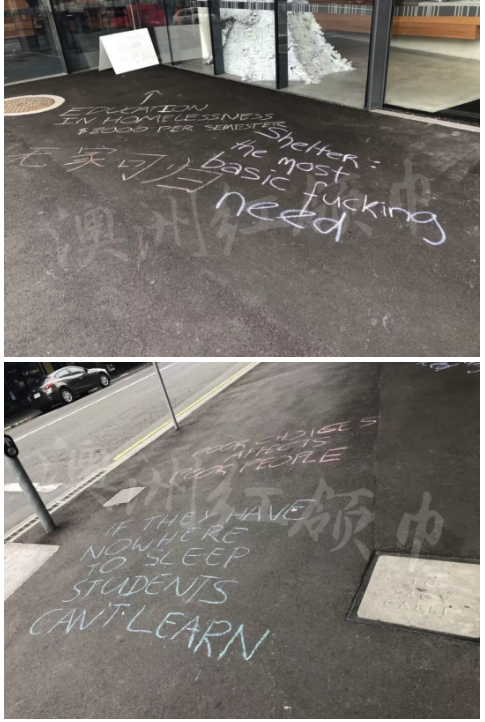 EDUCATION
IN HOMELESSNESS
PER SEMESTER
Shelter:
the most
basic fucking
need
无家可归
澳洲红领巾
POOR CHOICES
AFFECTS
POOR PEOPLE
澳洲红领巾
IF THEY HAVE
NOWHERE
TO SLEEP
STUDENTS
CAN'T LEARN